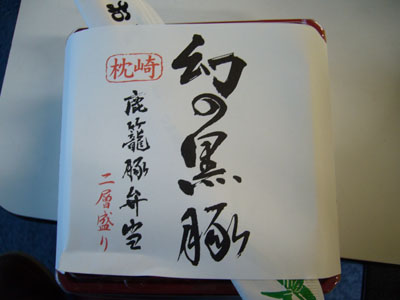 幻の黒豚
枕崎
鹿籠豚弁当
二層盛り